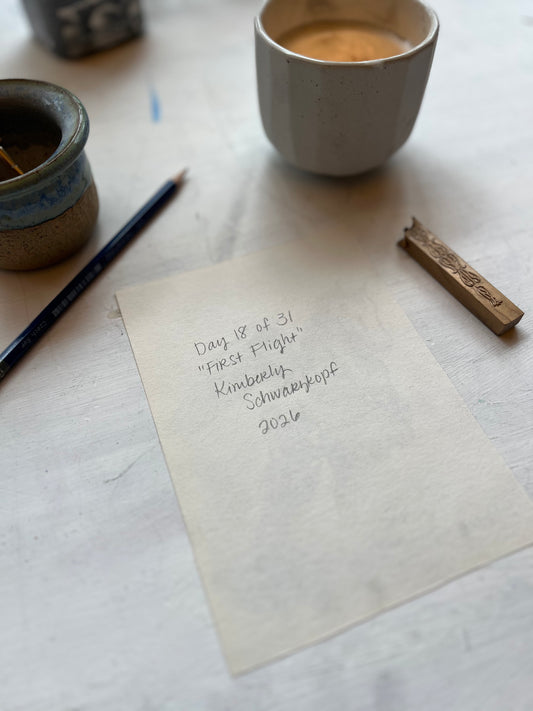 Day 18 of 31
"First Flight"
Kimberly
Schwarzkopf
2026